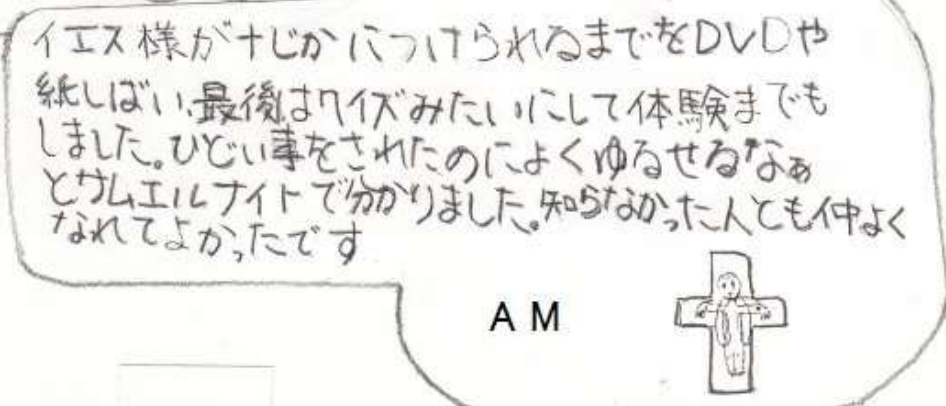 イエス様が十じかにつけられるまでをDVDや
紙しばい、最後はクイズみたいにして体験までも
しました。ひどい事をされたのによくゆるせるなぁ
とサムエルナイトで分かりました。知らなかった人とも仲よく
なれてよかったです
AM